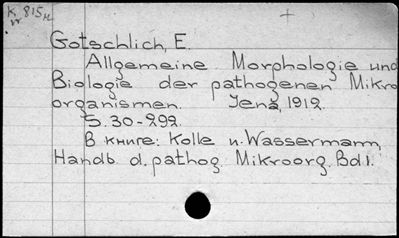 K 815
Gotschlich, E.
Allgemeine Morphologie und
Biologie der pathogenen Mikro
organismen. Jena, 1912.
S. 30-292.
В книге: Kolle u. Wassermann,
Handb d. pathog. Mikroorg. Bd I.